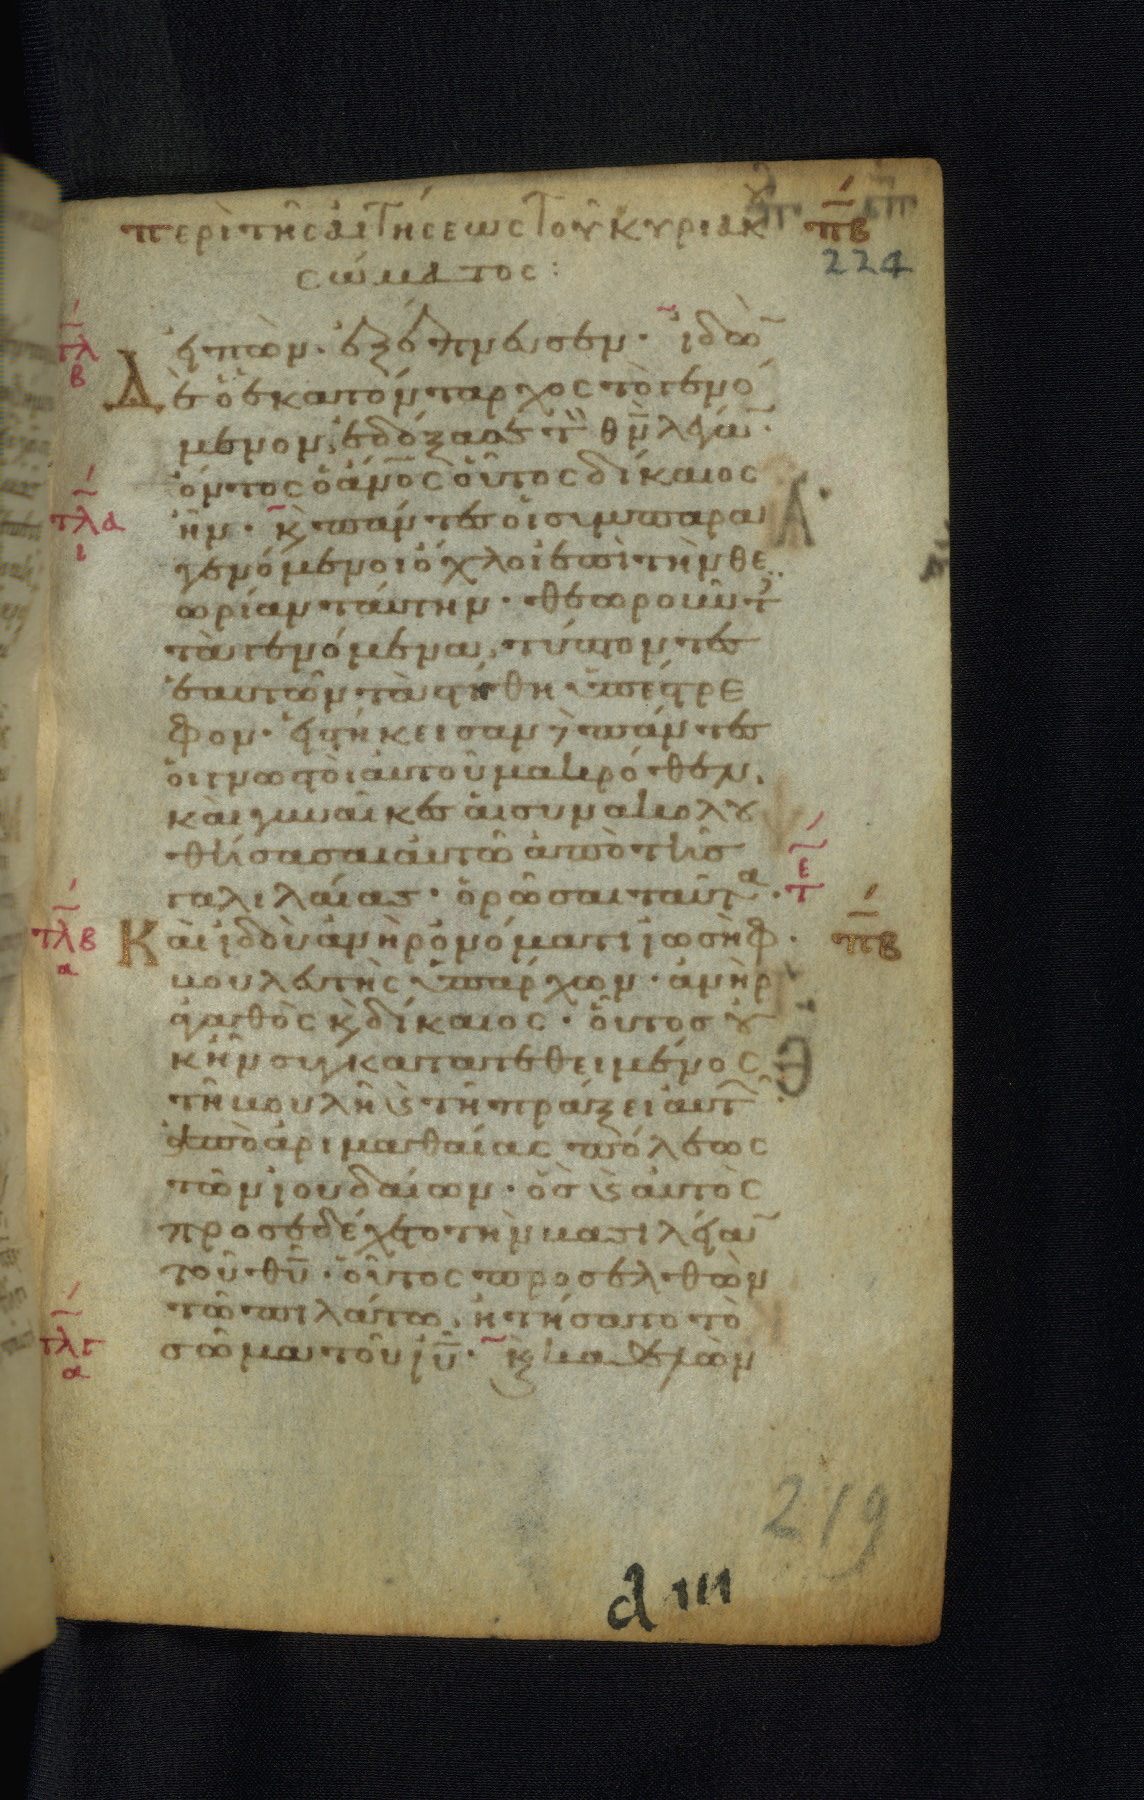 περὶ τῆς αἰτήσεως τοῦ κυριακοῦ πβ
224
σώματος:
τλ
β
εἰπὼν. ἐξέπνευσεν. ἰδὼν
Δὲ ὁ ἑκατόνταρχος τὸ γενό
μενον, ἐδόξασε τὸν θν λέγων.
ὄντως ὁ ἄνος οὗτος δίκαιος
τλα
ι
ἦν. κ πάντες οἱ συμπαρα
γενόμενοι ὄχλοι ἐπὶ τὴν θε
ωρίαν ταύτην. θεωροῦντες
τὰ γενόμενα, τύπτοντες
ἑαυτῶν τὰ στήθη ὑπέστρε
φον. εἱστήκεισαν δὲ πάντες
οἱ γνωστοὶ αὐτοῦ μακρόθεν.
καὶ γυναῖκες αἱ συνακολου
θήσασαι αὐτῶ ἀπὸ τῆς
γαλιλαίας. ὁρῶσαι ταῦτα.
τλβ
α
Καὶ ἰδοὺ ἀνὴρ ὀνόματι ἰωσὴφ. πβ
βουλευτὴς ὑπάρχων. ἀνὴρ
ἀγαθὸς κ δίκαιος. οὗτος οὐ
κ ἦν συγκατατεθειμένος
τῆ βουλῆ κ τῆ πράξει αὐτῶν
ἀπὸ ἀριμαθαίας πόλεως
τῶν ἰουδαίων. ὃς κ αὐτὸς
προσεδέχετο τὴν βασιλείαν
τοῦ θυ. οὗτος προσελθὼν
τῶ πιλάτω, ἠτήσατο τὸ
τλγ
α
σῶμα τοῦ ιυ. κ καθελὼν
219